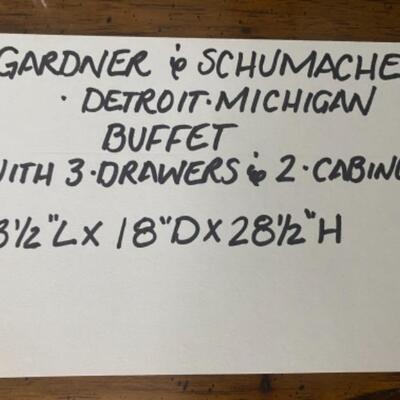 GARDNER & SCHUMACHE
· DETROIT·MICHIGAN
BUFFET
WITH 3·DRAWERS & 2·CABIN
3½"L X 18"D X 28½"H